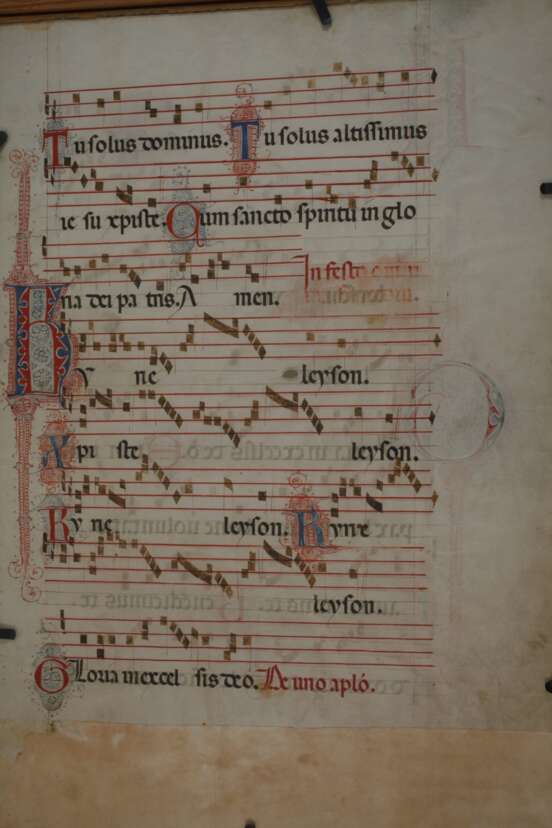 Tu solus dominus. Tu solus altissimus
ie su xpiste. Cum sancto spiritu in glo
ria dei pa tris. A men. In festo
Ky rie leyson.
Xpi ste leyson.
Ky rie leyson. Kyrie
leyson.
Gloria in excel sis deo. De uno aplo.